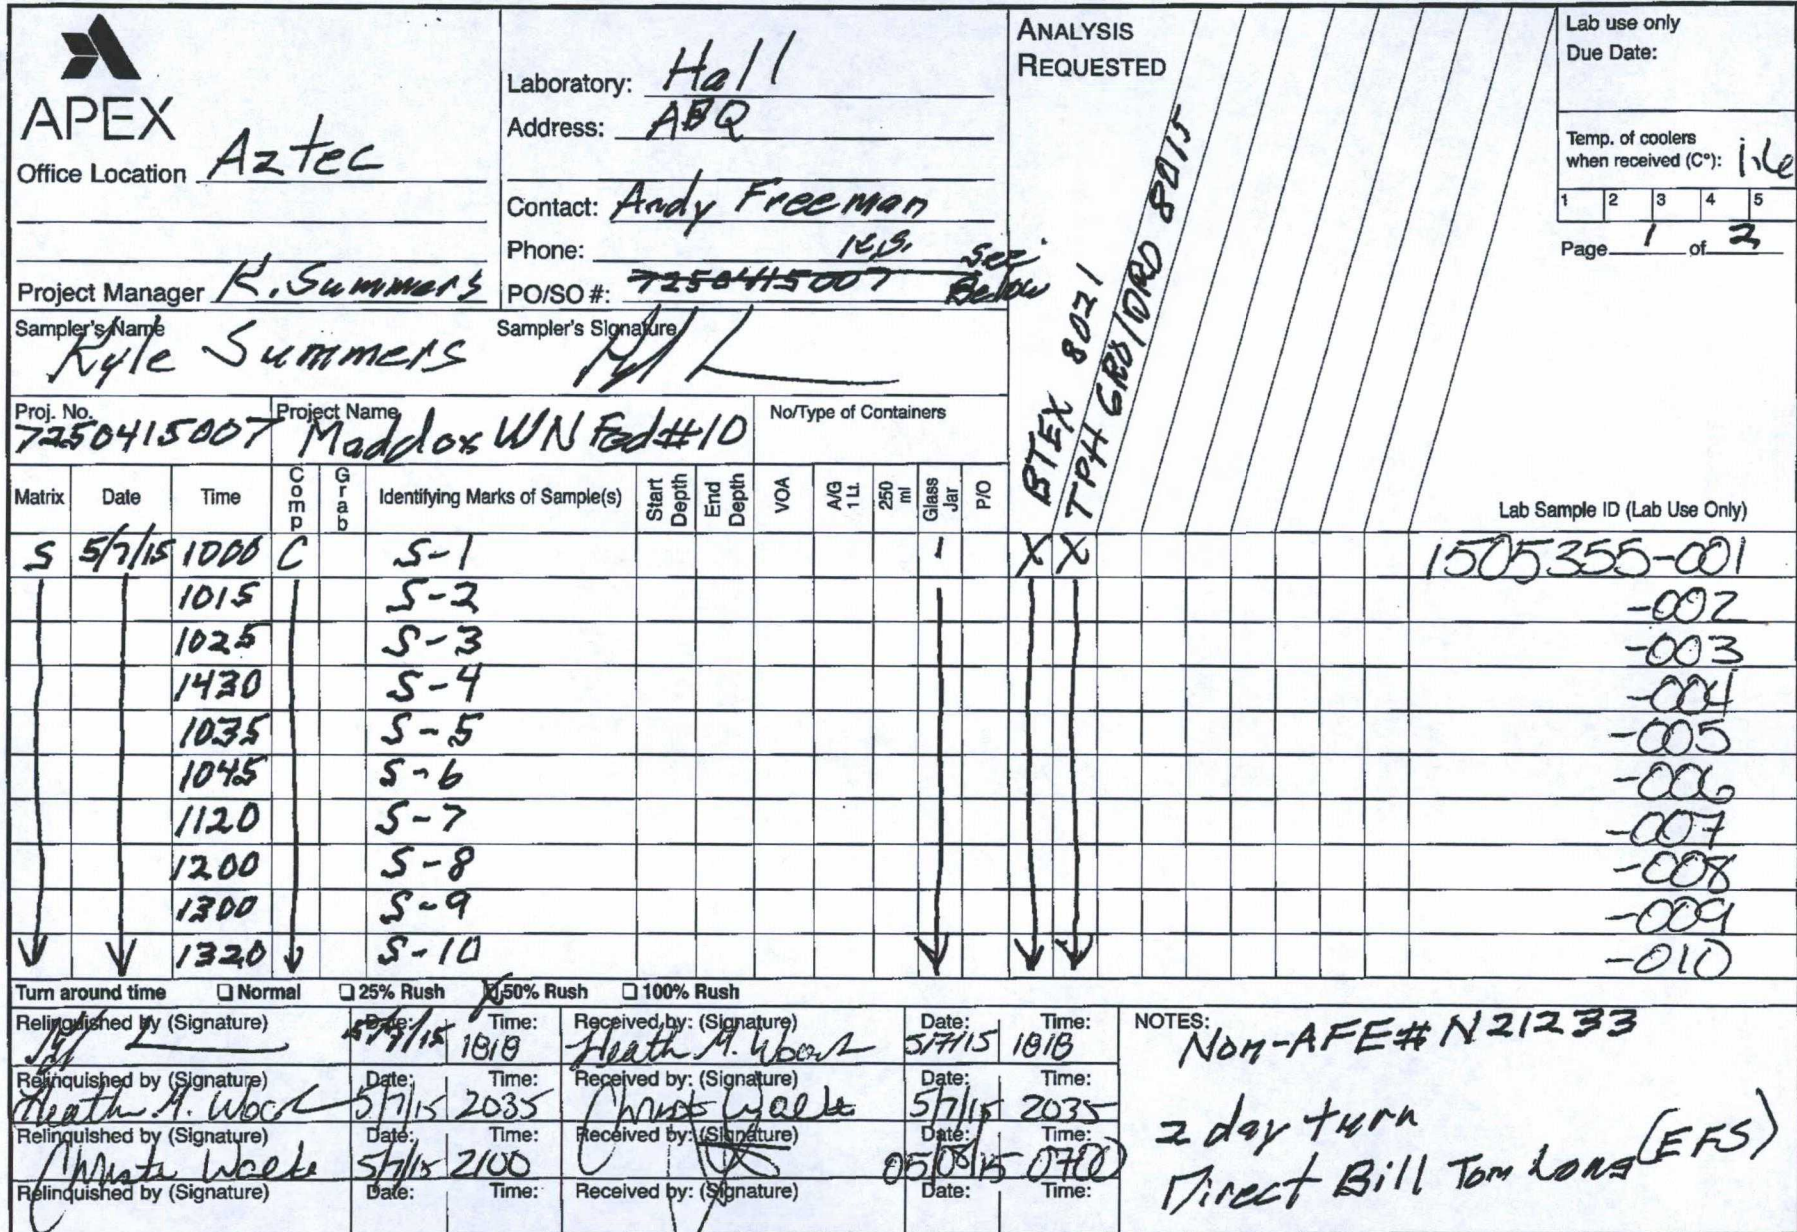 APEX
Office Location Aztec
Project Manager K. Summers
Laboratory: Hall
Address: ABQ
Contact: Andy Freeman
Phone:
K.S.
PO/SO #: 7250415007 See Below
ANALYSIS REQUESTED
BTEX 8021
TPH GRO/DRO 8015
Lab use only
Due Date:
Temp. of coolers
when received (C°):
1 2 3 4 5
Page 1 of 2
Sampler's Name
Kyle Summers
Sampler's Signature
Proj. No.
7250415007
Project Name
Maddox WN Fed#10
No/Type of Containers
Matrix Date Time Comp Grab Identifying Marks of Sample(s) Start Depth End Depth VOA A/G 1 Lt. 250 ml Glass Jar P/O Lab Sample ID (Lab Use Only)
S 5/7/15 1000 C S-1 1 X X 1505355-001
1015 S-2 -002
1025 S-3 -003
1430 S-4 -004
1035 S-5 -005
1045 S-6 -006
1120 S-7 -007
1200 S-8 -008
1300 S-9 -009
1320 S-10 -010
Turn around time Normal 25% Rush X 50% Rush 100% Rush
Relinquished by (Signature) Date: 5/7/15 Time: 1818 Received by: (Signature) Heath M. Wood Date: 5/7/15 Time: 1818
Relinquished by (Signature) Heath M. Wood Date: 5/7/15 Time: 2035 Received by: (Signature) Date: 5/7/15 Time: 2035
Relinquished by (Signature) Date: 5/7/15 Time: 2100 Received by: (Signature) Date: 05/08/15 Time: 0700
Relinquished by (Signature) Date: Time: Received by: (Signature) Date: Time:
NOTES:
Non-AFE# N21233
2 day turn
Direct Bill Tom Long (EFS)